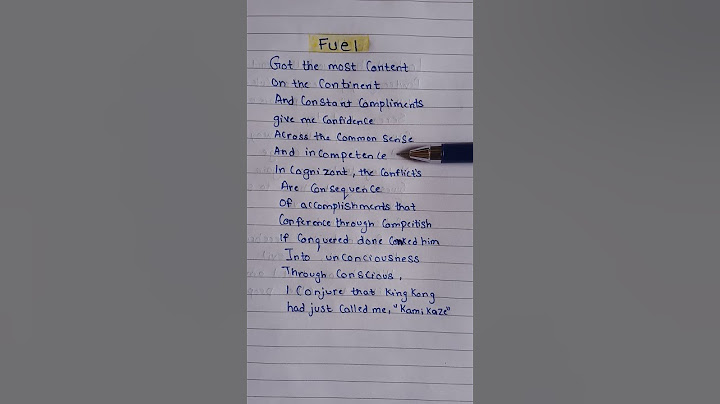 Fuel
Got the most Content
on the Continent
And Constant Compliments
give me Confidence
Across the Common Sense
And incompetence
In Cognizant, the Conflicts
Are Consequence
Of accomplishments that
Conference through Compeitish
If Conquered done Conked him
Into unconciousness
Through Conscious,
I Conjure that King Kong
had just Called me, "Kamikaze"